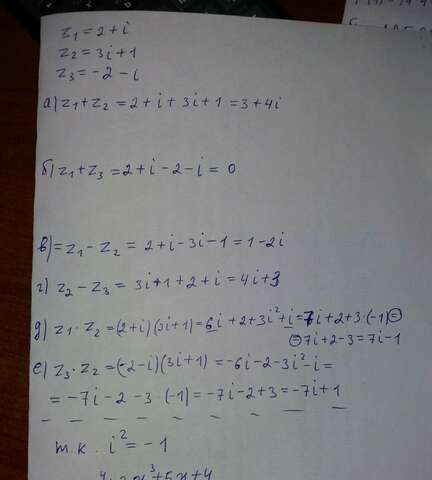 z₁ = 2 + i
z₂ = 3i + 1
z₃ = -2 - i
а) z₁ + z₂ = 2 + i + 3i + 1 = 3 + 4i
б) z₁ + z₃ = 2 + i - 2 - i = 0
в) = z₁ - z₂ = 2 + i - 3i - 1 = 1 - 2i
г) z₂ - z₃ = 3i + 1 + 2 + i = 4i + 3
д) z₁ · z₂ = (2+i)(3i+1) = 6i + 2 + 3i² + i = 7i + 2 + 3·(-1) =
= 7i + 2 - 3 = 7i - 1
е) z₃ · z₂ = (-2-i)(3i+1) = -6i - 2 - 3i² - i =
= -7i - 2 - 3·(-1) = -7i - 2 + 3 = -7i + 1
т.к. i² = -1